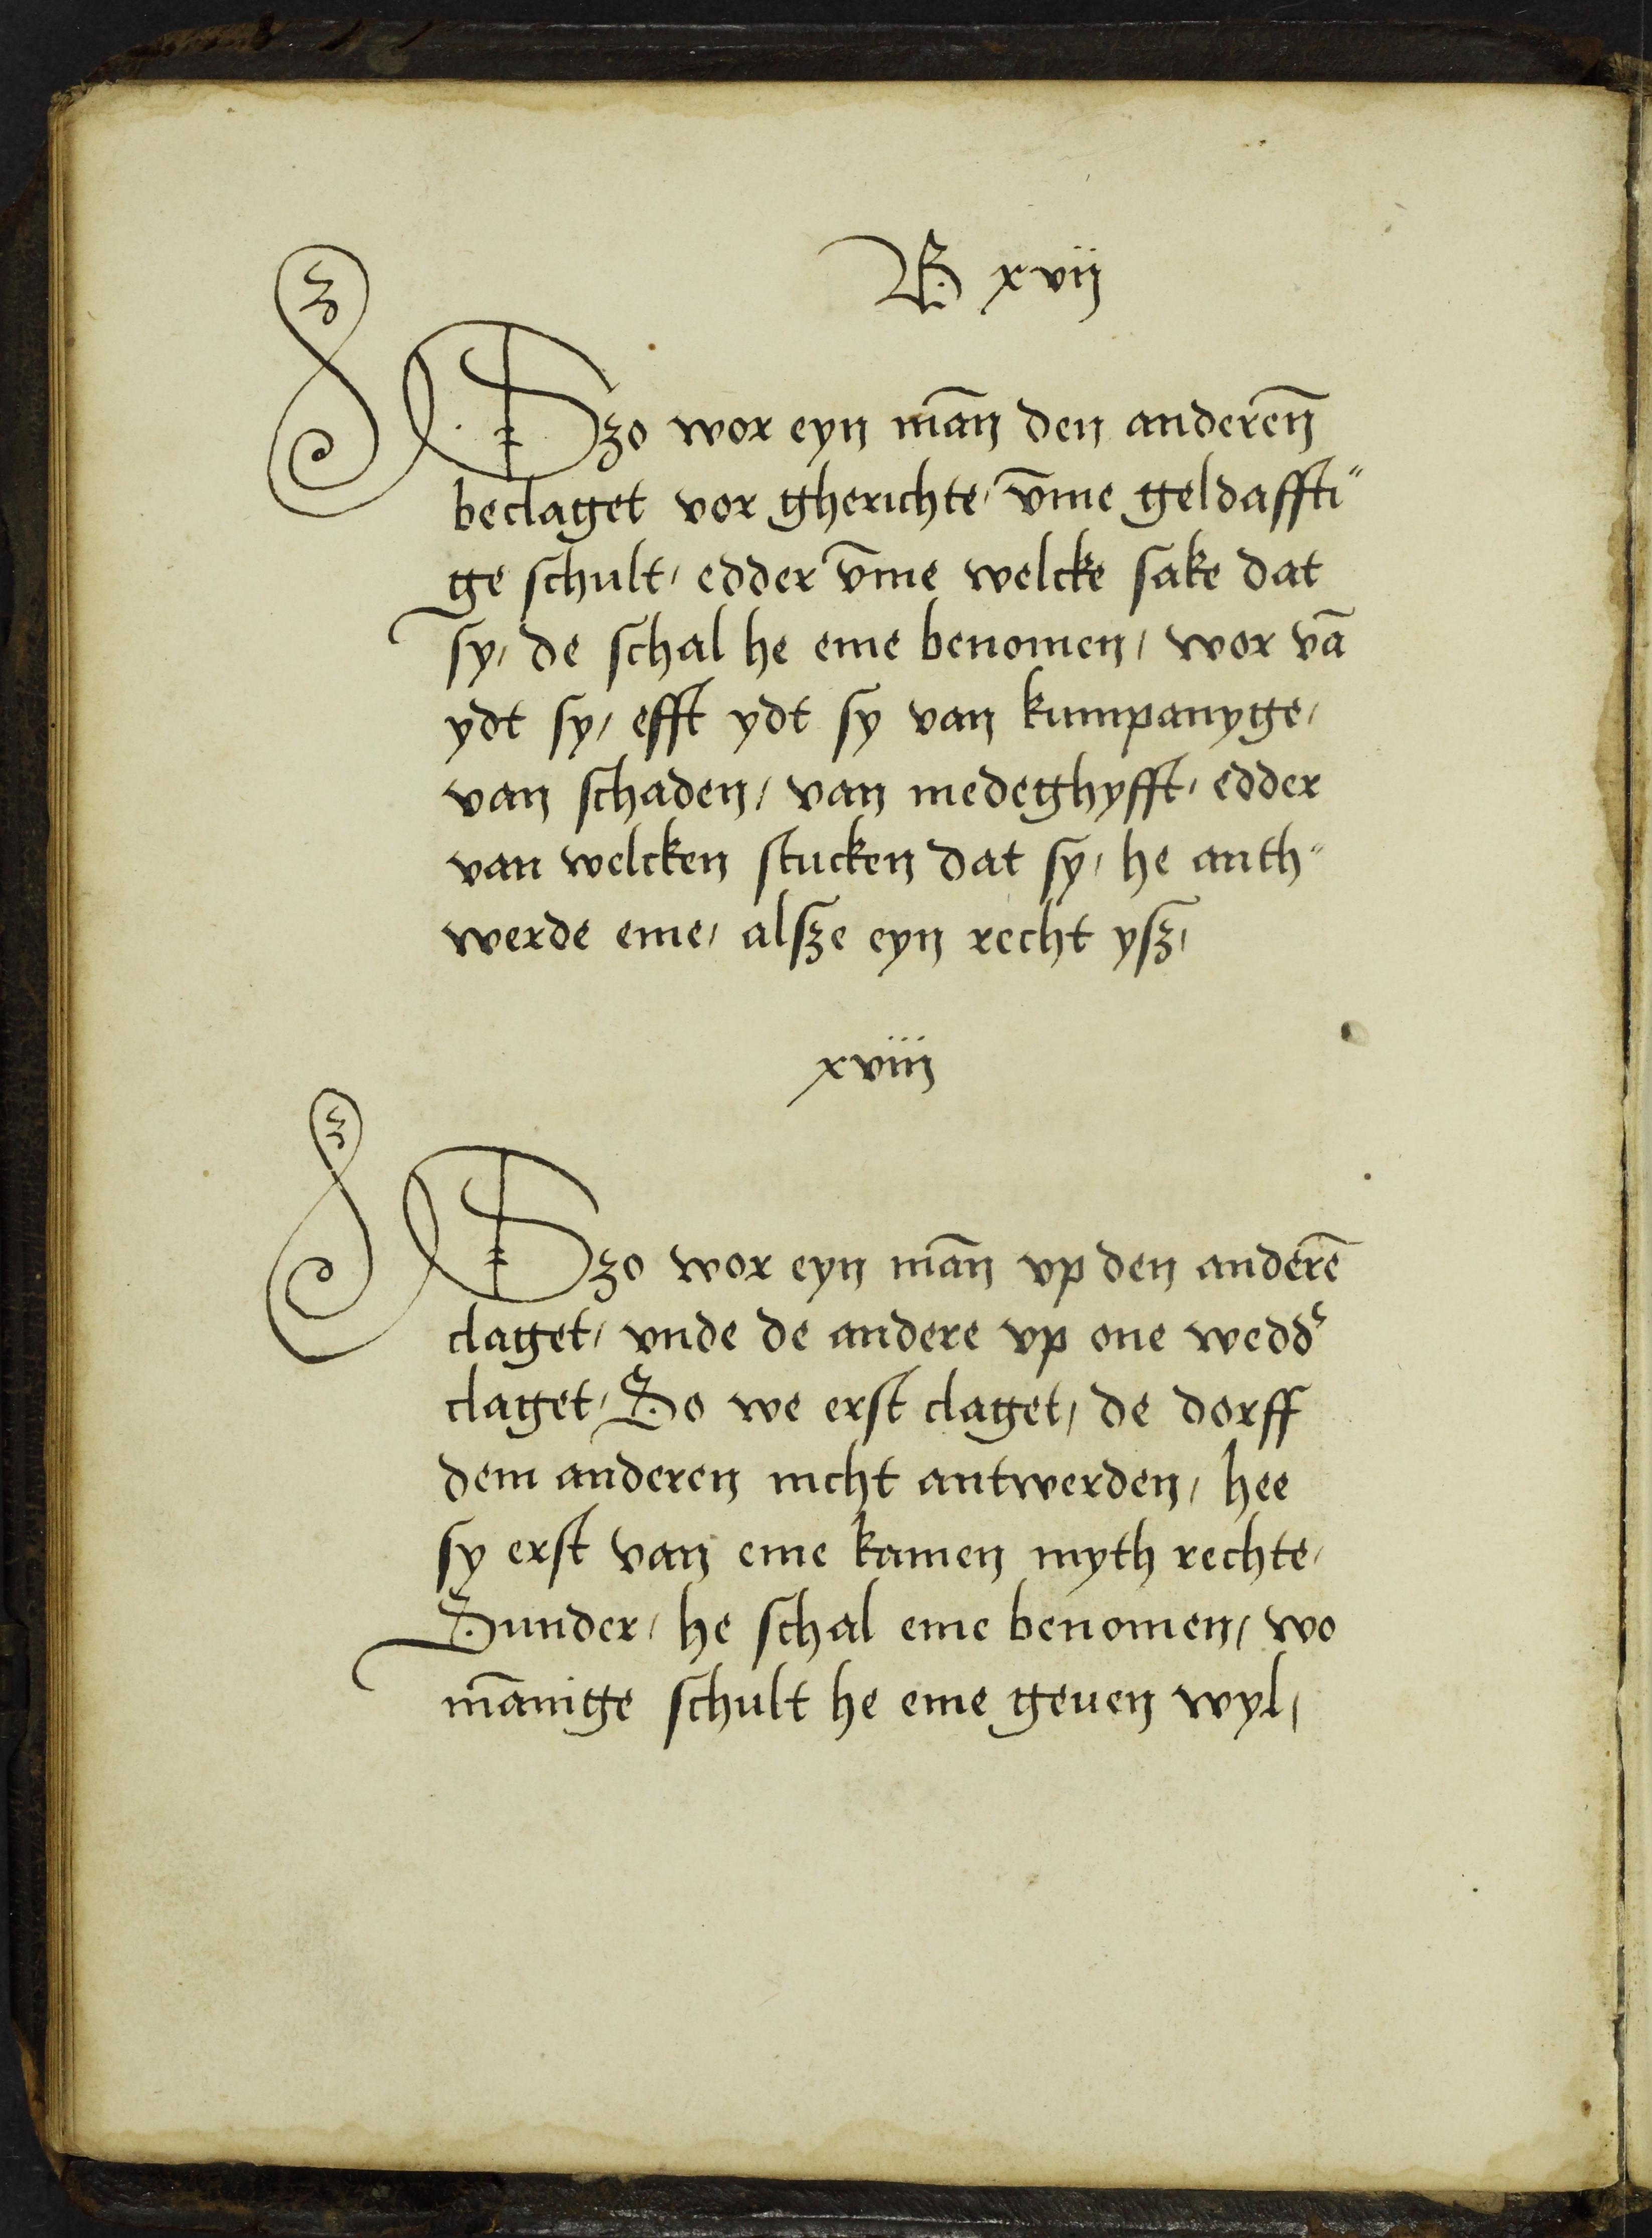 B xvij
Szo wor eyn mān den anderēn
beclaget vor gherichte / v̄me geldaffti„
ge schult / edder v̄me welcke sake dat
sy / de schal he eme benomen / wor vā
ydt sy / efft ydt sy van kumpanyge /
van schaden / van medeghyfft / edder
van welcken stucken dat sy / he anth„
werde eme / alsze eyn recht ysz /
xviij
Szo wor eyn mān vp den anderē
claget / vnde de andere vp one wedd'
claget / So we erst claget / de dorff
dem anderen nicht antwerden / hee
sy erst van eme kamen myth rechte /
Sunder / he schal eme benomen / wo
mānige schult he eme geuen wyl /